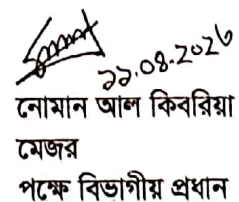 ২২.০৪.২০২৬
নোমান আল কিবরিয়া
মেজর
পক্ষে বিভাগীয় প্রধান